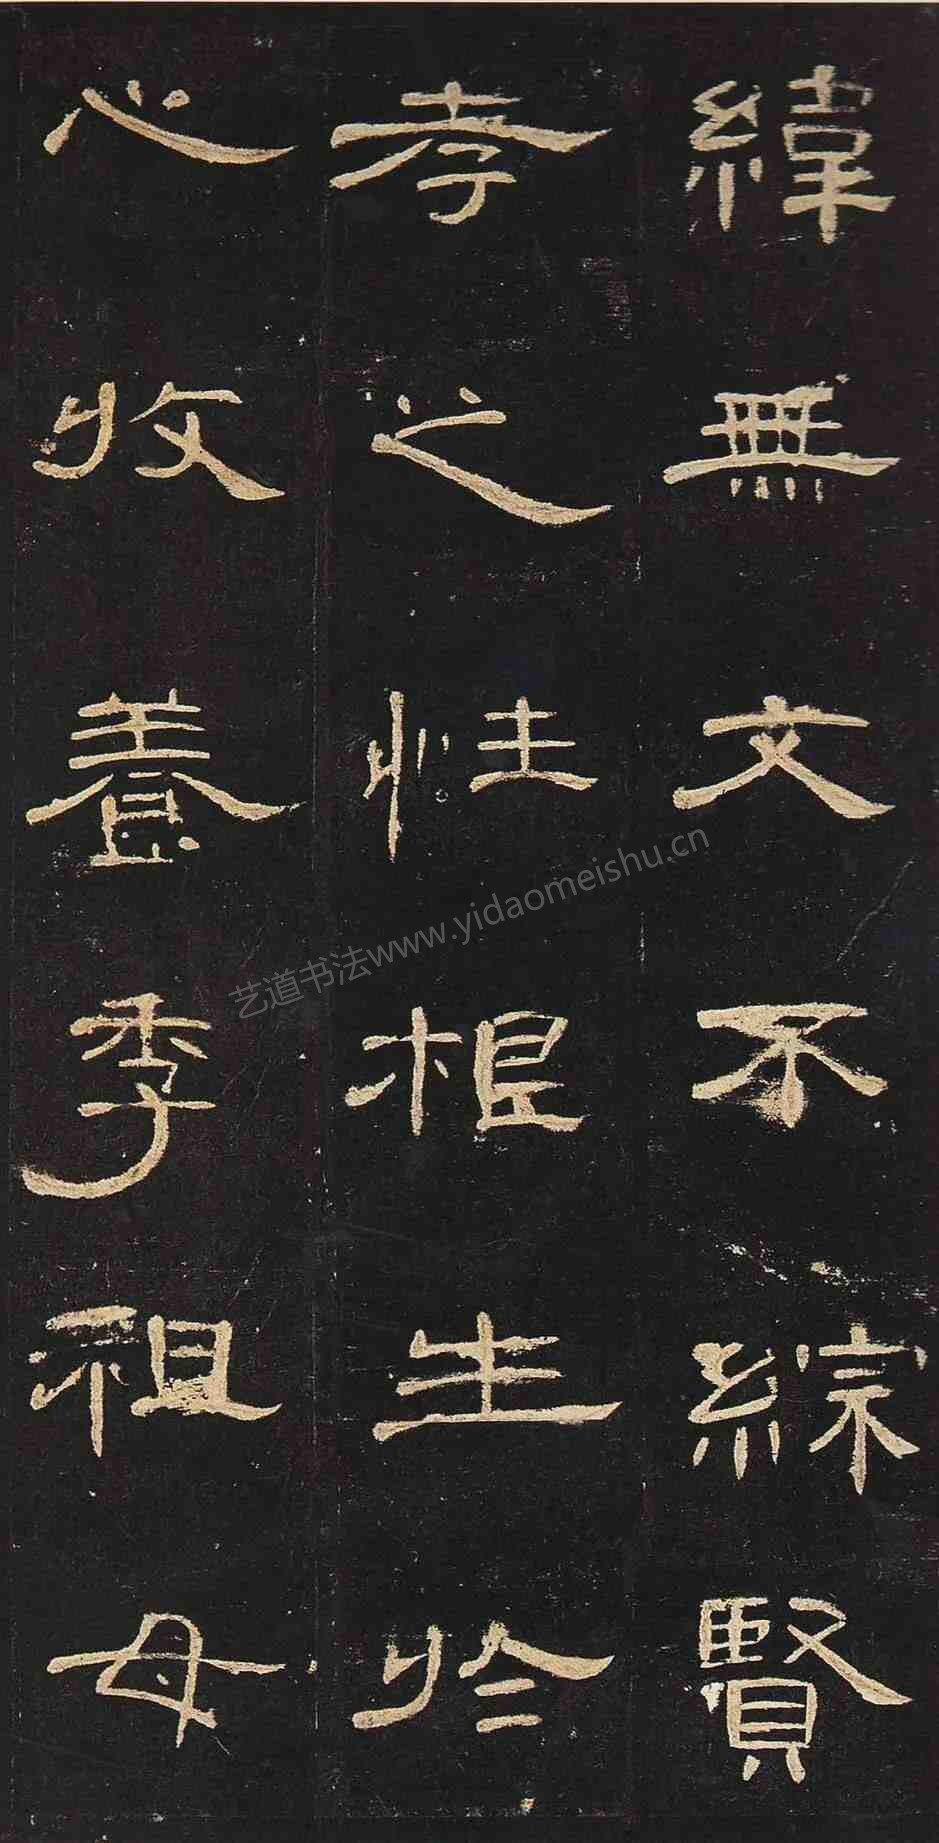 緯無文不綜賢
孝之性根生於
心收養季祖母
艺道书法www.yidaomeishu.cn